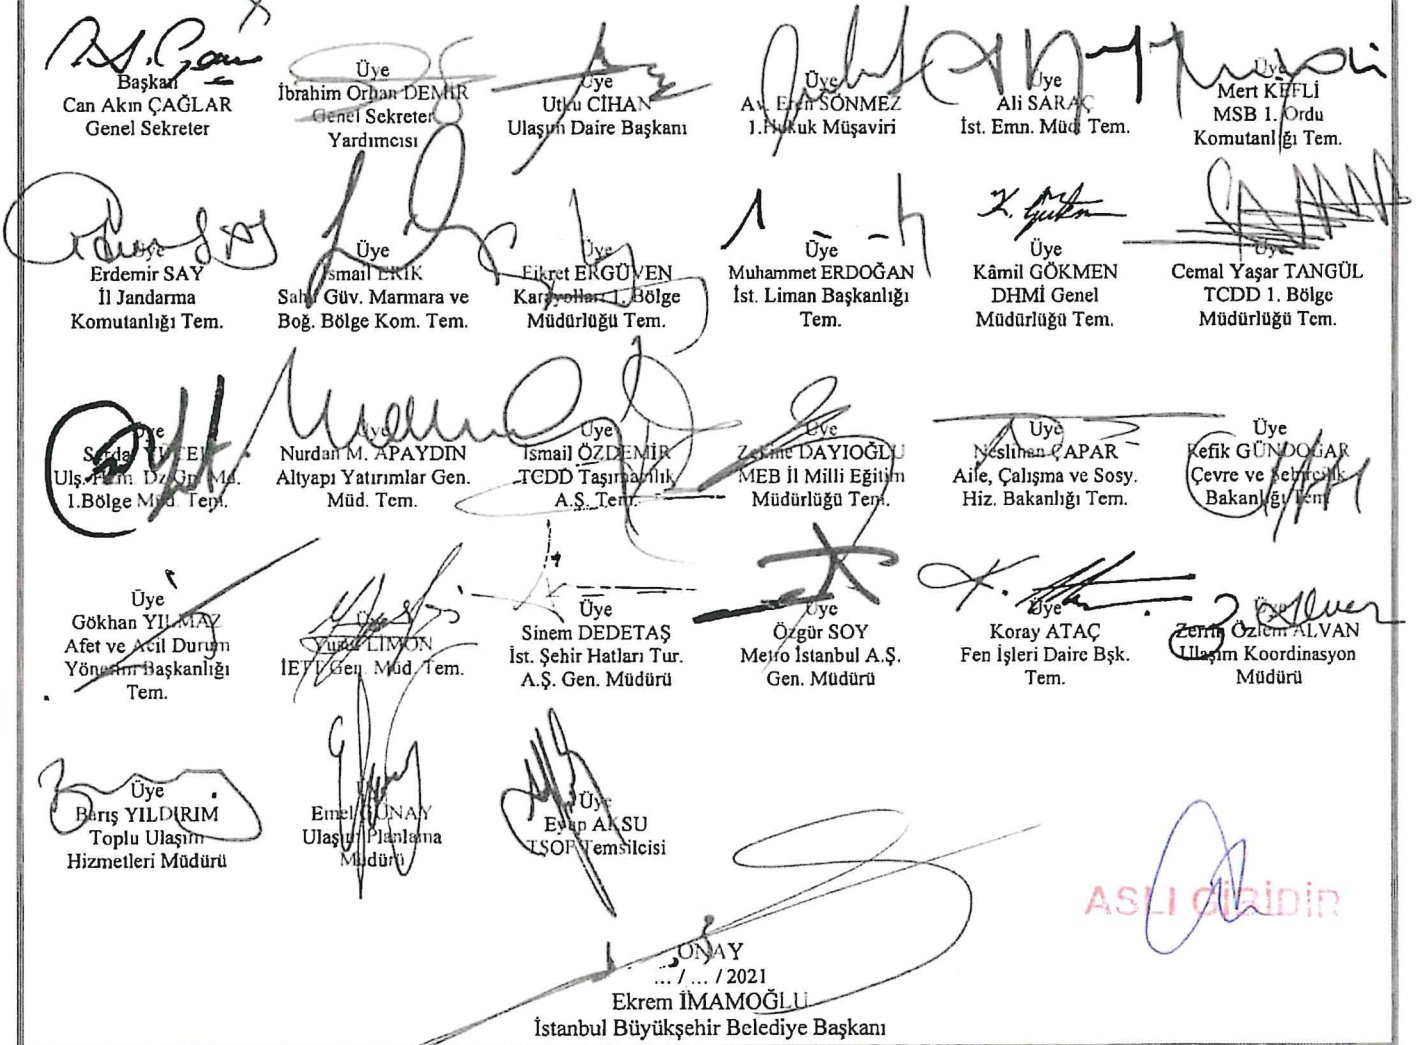 Başkan
Can Akın ÇAĞLAR
Genel Sekreter
Üye
İbrahim Orhan DEMİR
Genel Sekreter
Yardımcısı
Üye
Utku CİHAN
Ulaşım Daire Başkanı
Üye
Av. Eren SÖNMEZ
1.Hukuk Müşaviri
Üye
Ali SARAÇ
İst. Emn. Müd. Tem.
Üye
Mert KEFLİ
MSB 1. Ordu
Komutanlığı Tem.
Üye
Erdemir SAY
İl Jandarma
Komutanlığı Tem.
Üye
İsmail ERİK
Sahil Güv. Marmara ve
Boğ. Bölge Kom. Tem.
Üye
Fikret ERGÜVEN
Karayolları 1. Bölge
Müdürlüğü Tem.
Üye
Muhammet ERDOĞAN
İst. Liman Başkanlığı
Tem.
K. Gökmen
Üye
Kâmil GÖKMEN
DHMİ Genel
Müdürlüğü Tem.
Üye
Cemal Yaşar TANGÜL
TCDD 1. Bölge
Müdürlüğü Tem.
Üye
1.Bölge Müd. Tem.
Üye
Nurdan M. APAYDIN
Altyapı Yatırımlar Gen.
Müd. Tem.
Üye
İsmail ÖZDEMİR
TCDD Taşımacılık
A.Ş. Tem.
Üye
Zekine DAYIOĞLU
MEB İl Milli Eğitim
Müdürlüğü Tem.
Üye
Neslihan ÇAPAR
Aile, Çalışma ve Sosy.
Hiz. Bakanlığı Tem.
Üye
Refik GÜNDOĞAR
Çevre ve Şehircilik
Bakanlığı Tem.
Üye
Gökhan YILMAZ
Afet ve Acil Durum
Yönetim Başkanlığı
Tem.
Üye
LİMON
İETT Gen. Müd. Tem.
Üye
Sinem DEDETAŞ
İst. Şehir Hatları Tur.
A.Ş. Gen. Müdürü
Üye
Özgür SOY
Metro İstanbul A.Ş.
Gen. Müdürü
Üye
Koray ATAÇ
Fen İşleri Daire Bşk.
Tem.
Üye
Zerrin Özlem ALVAN
Ulaşım Koordinasyon
Müdürü
Üye
Barış YILDIRIM
Toplu Ulaşım
Hizmetleri Müdürü
Üye
Emel GÜNAY
Ulaşım Planlama
Müdürü
Üye
Eyüp AKSU
TŞOF Temsilcisi
ASLI GİBİDİR
ONAY
... / ... / 2021
Ekrem İMAMOĞLU
İstanbul Büyükşehir Belediye Başkanı